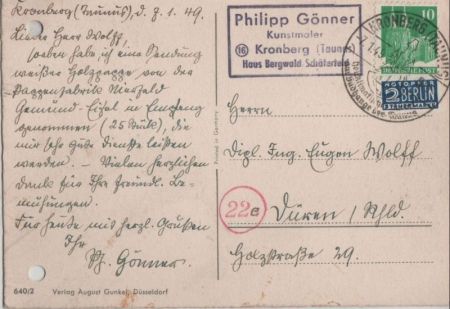 Kronberg (Taunus), d. 7. 1. 49.
Lieber Herr Wolff,
soeben habe ich eine Sendung
weißer Holzpappe von der
Pappenfabrik
Gemünd-Eifel in Empfang
genommen (25 Stück), die
mir sehr gute Dienste leisten
werden. – Vielen herzlichen
Dank für Ihre freundl. Be-
mühungen.
Für heute mit herzl. Grüßen
Ihr
Ph. Gönner.
640/2 Verlag August Gunkel, Düsseldorf
Printed in Germany
Philipp Gönner
Kunstmaler
(16) Kronberg (Taunus)
Haus Bergwald
KRONBERG (TAUNUS)
10
DEUTSCHE POST
NOTOPFER
2 BERLIN
STEUERMARKE
Herrn
Dipl. Ing. Eugen Wolff
22c Düren / Rhld.
Holzstraße 29.